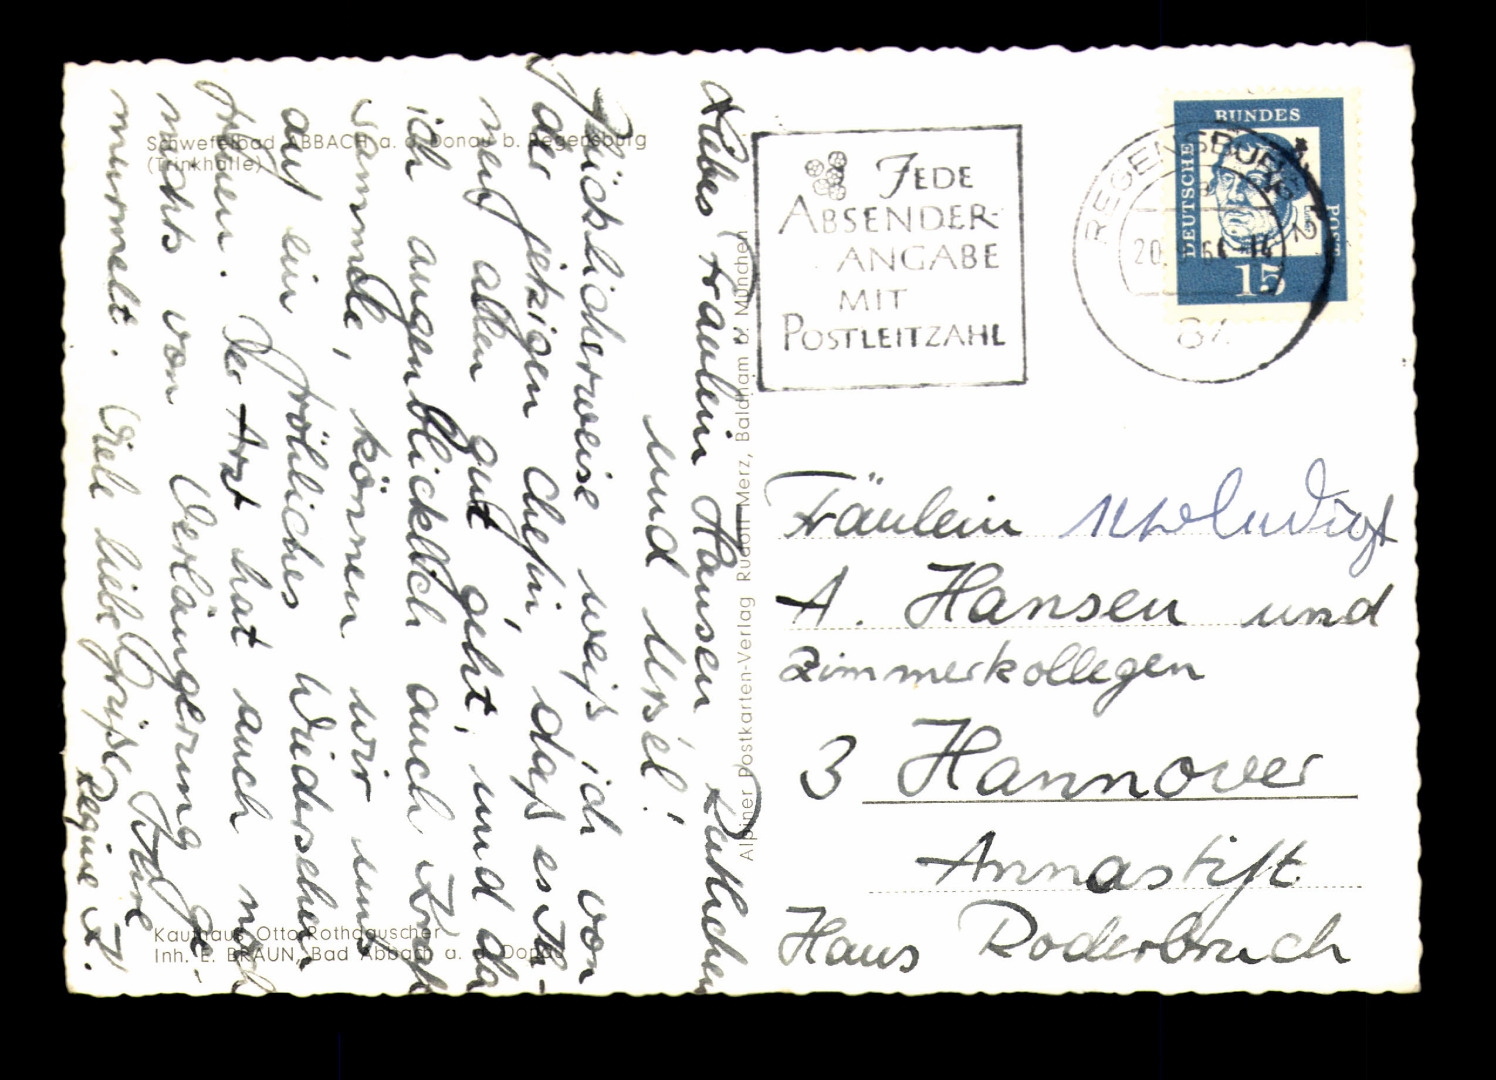 Schwefelbad ABBACH a. d. Donau b. Regensburg
(Trinkhalle)
Liebes Fräulein Hansen
und Ursel!
Glücklicherweise weiß ich von
der jetzigen Chefin, daß es Ih-
nen allen gut geht, und da
ich augenblicklich auch Kraft
sammle, können wir uns
auf ein fröhliches Wiedersehen
freuen. Der Arzt hat auch noch
nichts von Verlängerung ge-
murmelt. Viele liebe Grüße Ihre
Regine
Kaufhaus Otto Rothdauscher
Inh. E. BRAUN, Bad Abbach a. d. Donau
Alpiner Postkarten-Verlag Rudolf Merz, Baldham b. München
JEDE
ABSENDER-
ANGABE
MIT
POSTLEITZAHL
REGENSBURG 2
DEUTSCHE
BUNDES
POST
15
Fräulein
A. Hansen und
Zimmerkollegen
3 Hannover
Annastift
Haus Roderbruch